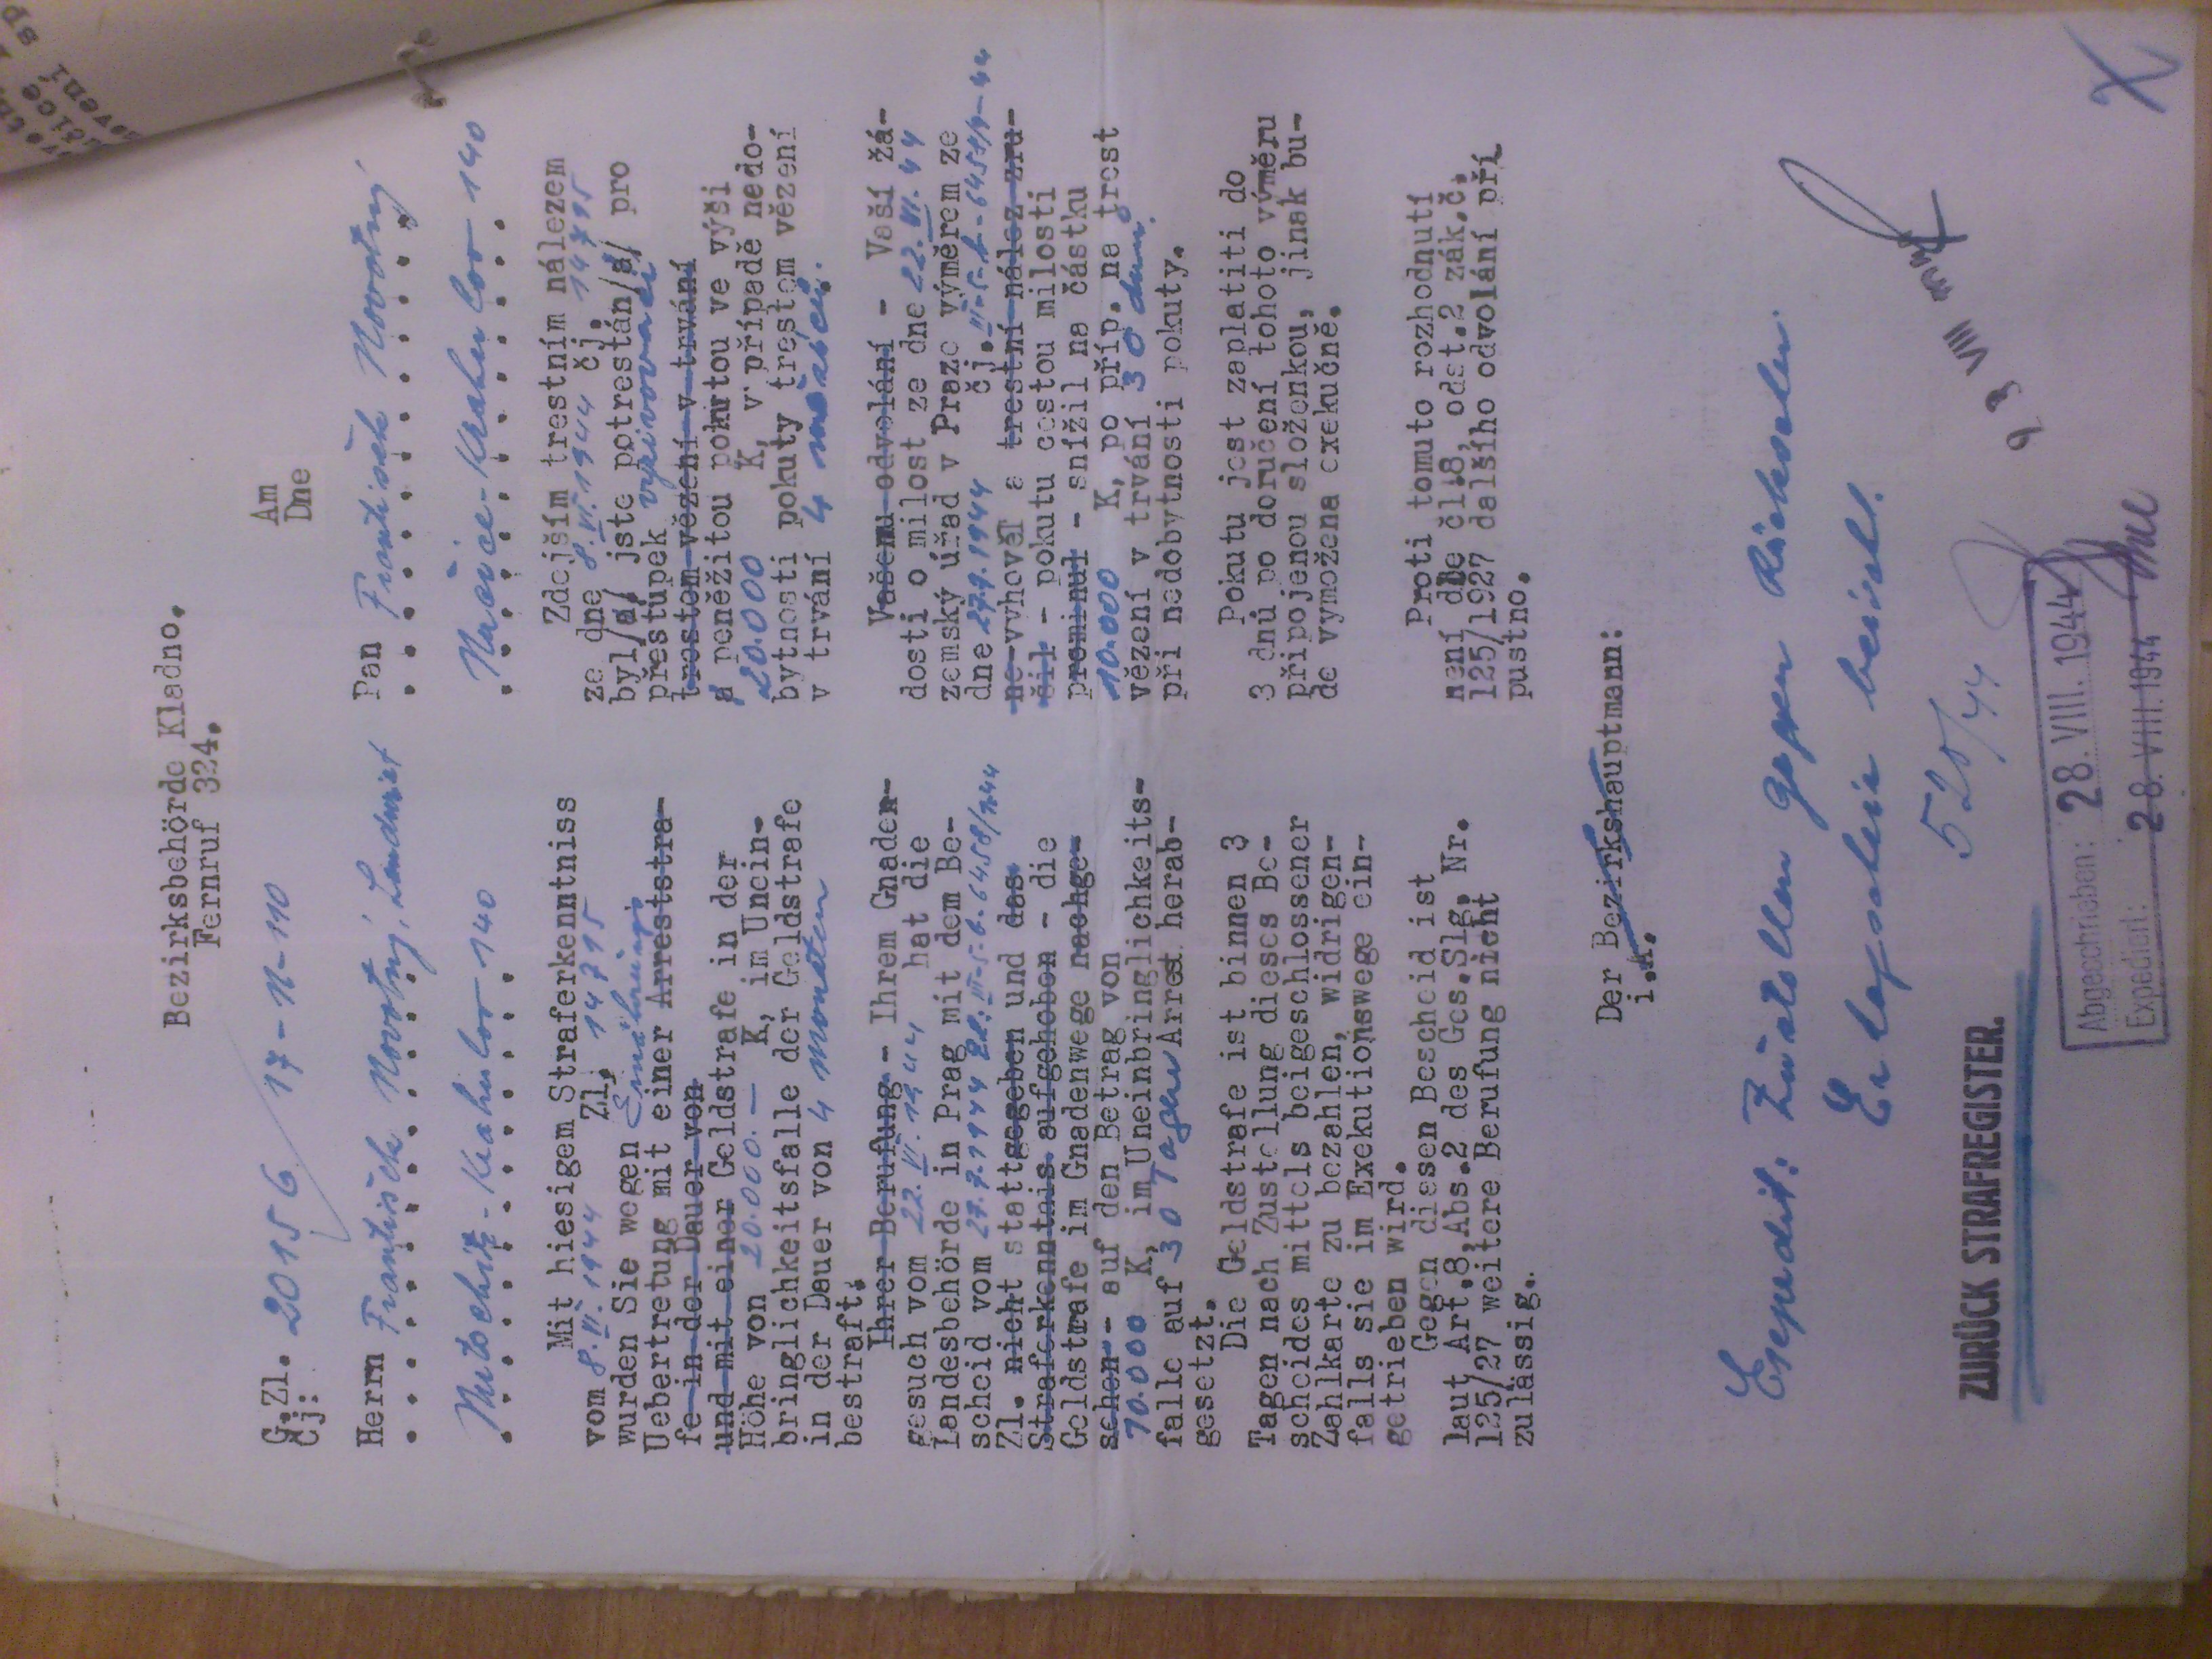 Bezirksbehörde Kladno.
Fernruf 324.
G.Zl. 20156 / 17-N-110
Čj:
Am
Dne
Herrn František Novotný, Landwirt
Nutschitz-Krahulov 140
Mit hiesigem Straferkenntniss
vom 8.VI.1944 Zl. 14715
wurden Sie wegen Ernährungs
Uebertretung mit einer Arreststra-
fe in der Dauer von
und mit einer Geldstrafe in der
Höhe von 20.000.- K, im Unein-
bringlichkeitsfalle der Geldstrafe
in der Dauer von 4 Monaten
bestraft.
Ihrer Berufung - Ihrem Gnaden-
gesuch vom 22.VI.1944 hat die
Landesbehörde in Prag mit dem Be-
scheid vom 27.7.1944 Zl: VI-5-b-6458/1-44
Zl. nicht stattgegeben und das
Straferkenntnis aufgehoben - die
Geldstrafe im Gnadenwege nachge-
sehen - auf den Betrag von
10.000 K, im Uneinbringlichkeits-
falle auf 30 Tagen Arrest herab-
gesetzt.
Die Geldstrafe ist binnen 3
Tagen nach Zustellung dieses Be-
scheides mittels beigeschlossener
Zahlkarte zu bezahlen, widrigen-
falls sie im Exekutionswege ein-
getrieben wird.
Gegen diesen Bescheid ist
laut Art.8,Abs.2 des Ges.Slg. Nr.
125/27 weitere Berufung nicht
zulässig..
Pan František Novotný
Nučice-Krahulov 140
Zdejším trestním nálezem
ze dne 8.VI.1944 čj. 14715
byl/a/ jste potrestán/a/ pro
přestupek vyživovací
trestem vězení v trvání
a peněžitou pokutou ve výši
20.000 K, v případě nedo-
bytnosti pokuty trestem vězení
v trvání 4 měsíců.
Vašemu odvolání - Vaší žá-
dosti o milost ze dne 22.VI.44
zemský úřad v Praze výměrem ze
dne 27.7.1944 čj. VI-5-b-6458/1-44
ne-vyhověl a trestní nález zru-
šil - pokutu cestou milosti
prominul - snížil na částku
10.000 K, po příp. na trest
vězení v trvání 30 dnů
při nedobytnosti pokuty.
Pokutu jest zaplatiti do
3 dnů po doručení tohoto výměru
připojenou složenkou, jinak bu-
de vymožena exekučně.
Proti tomuto rozhodnutí
není dle čl.8, odst.2 zák.č.
125/1927 dalšího odvolání pří
pustno.
Der Bezirkshauptmann:
i.A.
Expedit: Zustellen gegen Rückschein.
Erlagschein beischl.
520/44
23 VIII 1944
ZURÜCK STRAFREGISTER.
Abgeschrieben: 28. VIII. 1944
Expediert: 28. VIII. 1944
X